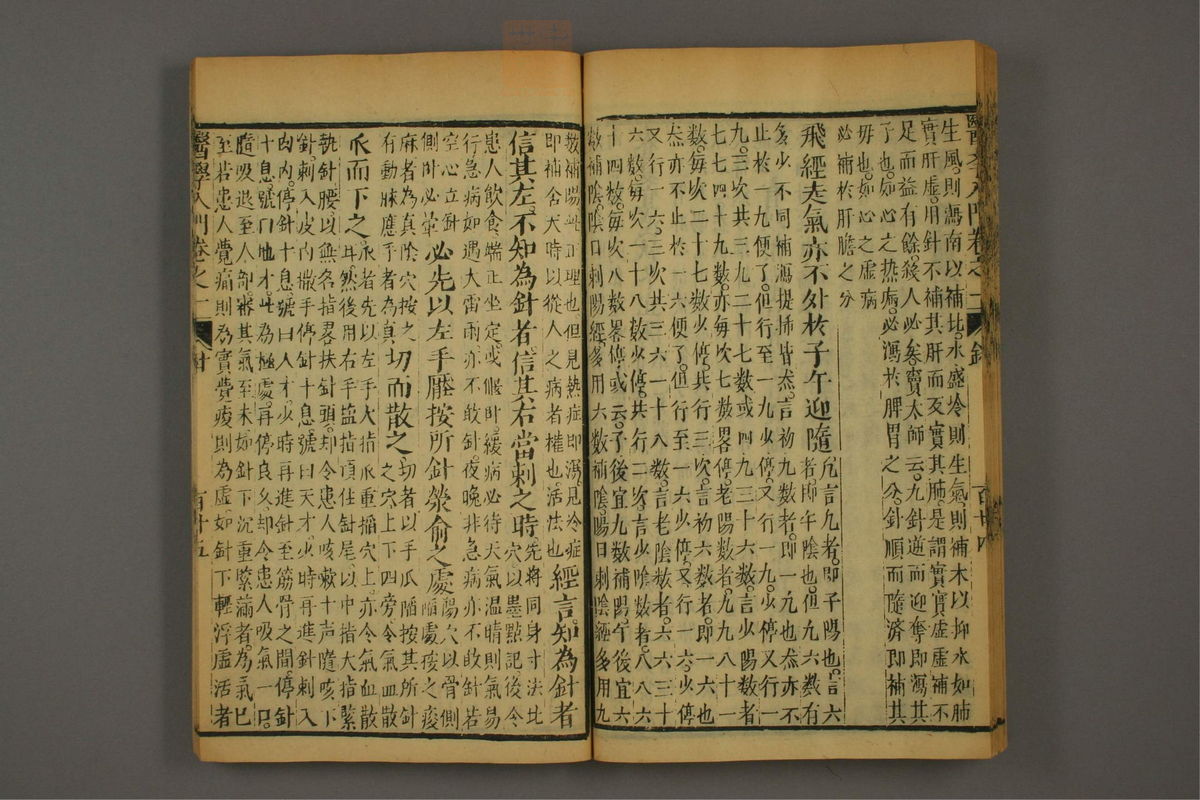 醫學入門卷之一 針 百十四
生風則瀉南以補北水盛冷則生氣則補木以抑水如肺
實肝虛用針不補其肝而反實其肺是謂實實虛虛補不
足而益有餘殺人必矣竇太師云凢針逆而迎奪即瀉其
子也如心之熱病必瀉於脾胃之分針順而隨濟即補其
毋也如心之虛病
必補於肝膽之分
飛經走氣亦不外於子午迎隨 凢言九者即子陽也言六
者即午陰也但九六數有
多少不同補瀉提插皆然言初九數者即一九也然亦不
止於一九便了但行至一九少停又行一九少停又行一
九三次共三九二十七數或四九三十六數言少陽數者
七七四十九數亦每次七數畧停老陽數者九九八十一
數每次二十七數少停共行三次言初六數者即一六也
然亦不止於一六便了但行至一六少停又行一六少停
又行一六三次共三六一十八數言老陰數者六六三十
六數每次一十八數少停共行二次言少陰數者八八六
十四數每次八數畧停或云子後宜九數補陽午後宜六
數補陰陰日刺陽經多用六數補陰陽日刺陰經多用九
數補陽此正理也但見熱症即瀉見冷症
即補舍天時以從人之病者權也活法也 經言知為針者
信其左不知為針者信其右當刺之時 先將同身寸法比
穴以墨點記後令
患人飲食端正坐定或偃卧緩病必待天氣温晴則氣易
行急病如遇大雷雨亦不敢針夜晚非急病亦不敢針若
空心立針
側卧必暈 必先以左手壓按所針滎俞之處 陽穴以骨側
陷處按之痠
麻者為真陰穴按之
有動脉應手者為真 切而散之 切者以手爪陷按其所針
之穴上下四旁令氣血散
爪而下之 爪者先以左手大指爪重搯穴上亦令氣血散
耳然後用右手盬指頂住針尾以中指大指緊
執針腰以無名指畧扶針頭却令患人咳嗽十声隨咳下
針刺入皮內撒手停針十息號曰天才少時再進針刺入
肉內停針十息號曰人才少時再進針至筋骨之間停針
十息號曰地才此為極處再停良久却令患人吸氣一口
隨吸退至人部審其氣至未如針下沉重緊滿者為氣已
至若患人覺痛則為實覺痠則為虛如針下輕浮虛活者
醫學入門卷之一 針 百十五